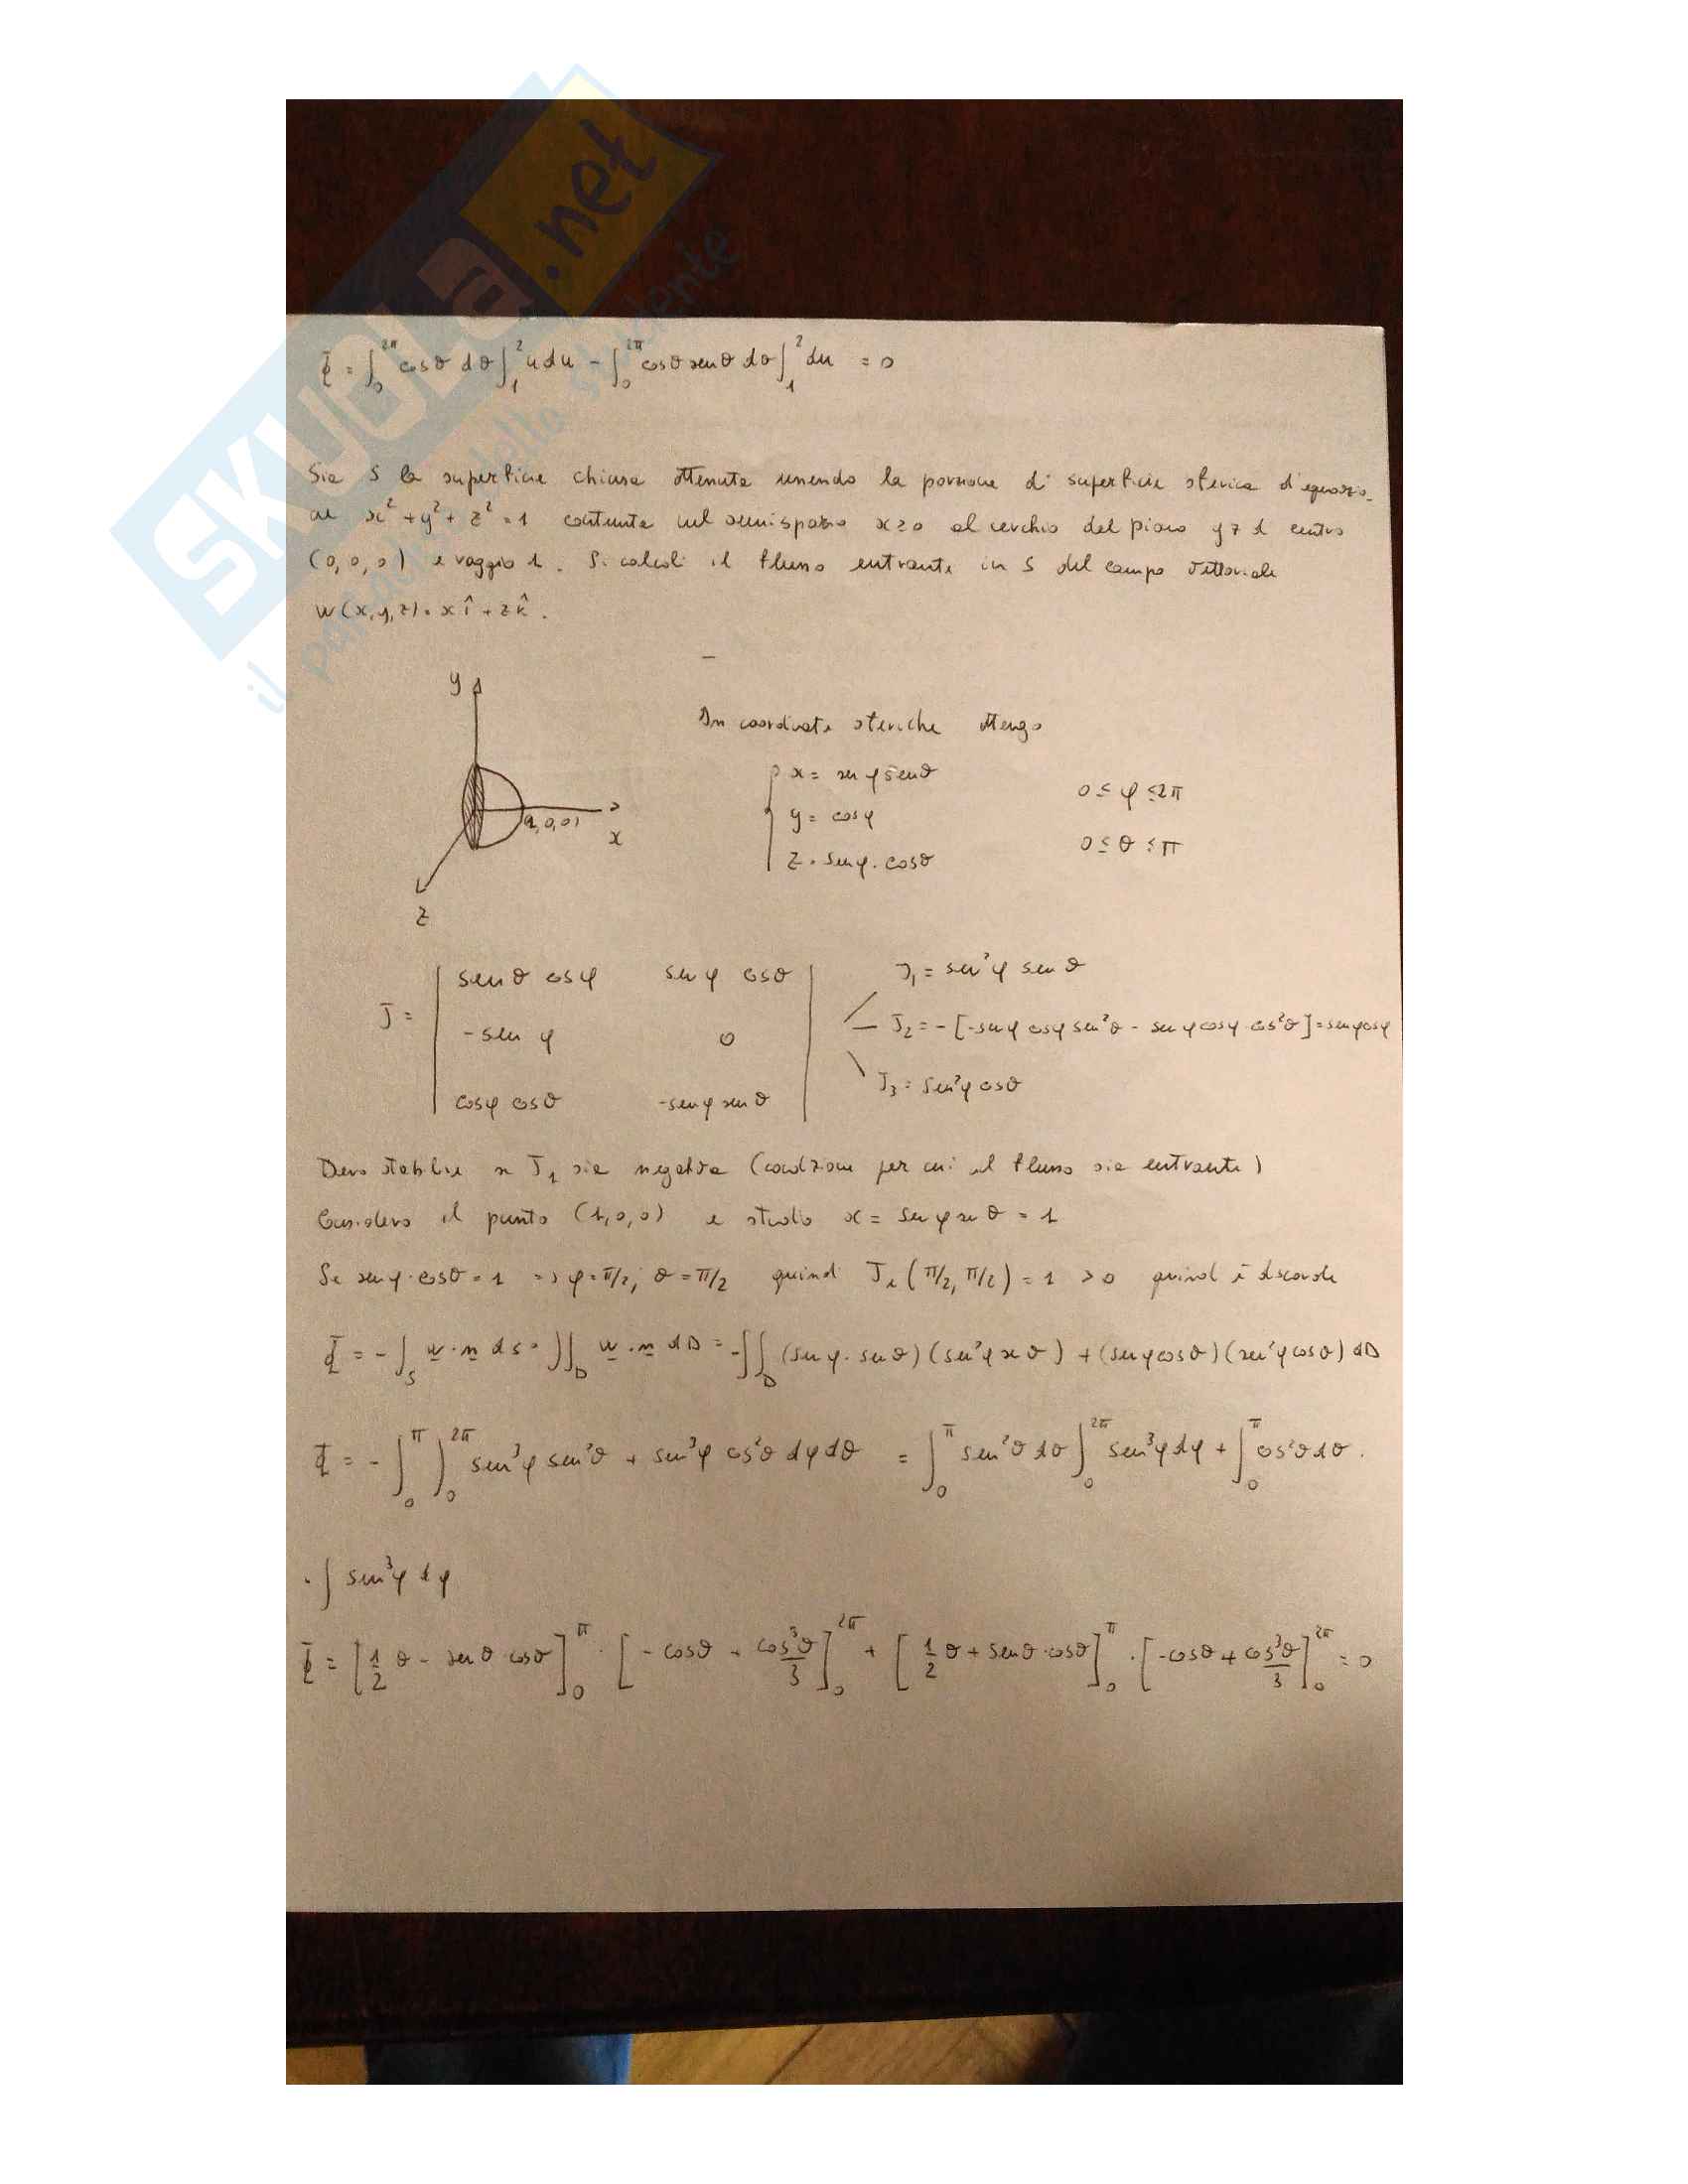 SKUOLA.net
il paradiso dello studente
Φ = ∫₀^{2π} cosθ dθ ∫₁² u du - ∫₀^{2π} cosθ senθ dθ ∫₁² du = 0
Sia S la superficie chiusa ottenuta unendo la porzione di superficie sferica d'equazio-
ne x² + y² + z² = 1 contenuta nel semispazio x≥0 al cerchio del piano yz di centro
(0,0,0) e raggio 1. Si calcoli il flusso entrante in S del campo vettoriale
W(x,y,z) = x î + z k̂.
y
(1,0,0)
x
z
In coordinate sferiche ottengo
x = sen φ sen θ
y = cos φ
z = sen φ · cos θ
0 ≤ φ ≤ 2π
0 ≤ θ ≤ π
J = | senθ cosφ senφ cosθ |
| -sen φ 0 |
| cosφ cosθ -senφ senθ |
J₁ = sen²φ sen θ
J₂ = - [-senφ cosφ sen²θ - senφ cosφ cos²θ] = senφ cosφ
J₃ = sen²φ cosθ
Devo stabilire se J₁ sia negativa (condizione per cui il flusso sia entrante)
Considero il punto (1,0,0) e studio x = sen φ sen θ = 1
Se sen φ · cosθ = 1 => φ = π/2, θ = π/2 quindi J₁(π/2, π/2) = 1 > 0 quindi è discorde
Φ = - ∫_S w · n ds = ∫∫_D w · n dD = - ∫∫_D (sen φ · sen θ)(sen²φ sen θ) + (senφ cosθ)(sen²φ cosθ) dD
Φ = - ∫₀^π ∫₀^{2π} sen³φ sen²θ + sen³φ cos²θ dφ dθ = ∫₀^π sen²θ dθ ∫₀^{2π} sen³φ dφ + ∫₀^π cos²θ dθ ·
· ∫ sen³φ dφ
Φ = [1/2 θ - sen θ cosθ]₀^π · [- cosθ + cos³θ/3]₀^{2π} + [1/2 θ + senθ · cosθ]₀^π · [-cosθ + cos³θ/3]₀^{2π} = 0